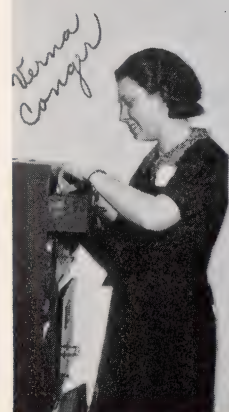 Verna
Conger